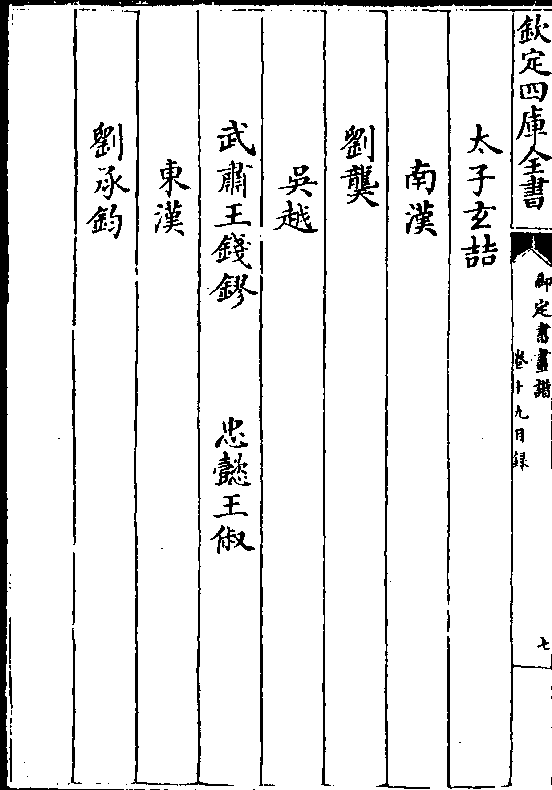 欽定四庫全書
御定書畫譜
卷十九目録
七
太子玄喆
南漢
劉龑
吳越
武肅王錢鏐 忠懿王俶
東漢
劉承鈞